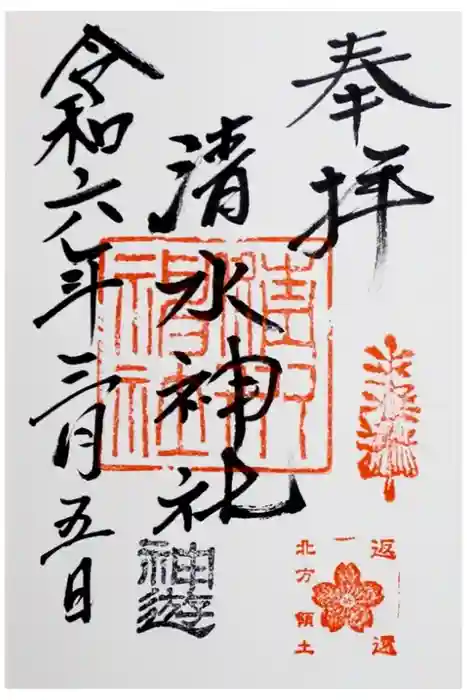 奉拝
清水神社
清水神社
神遊
令和六年三月五日
返還
北方領土